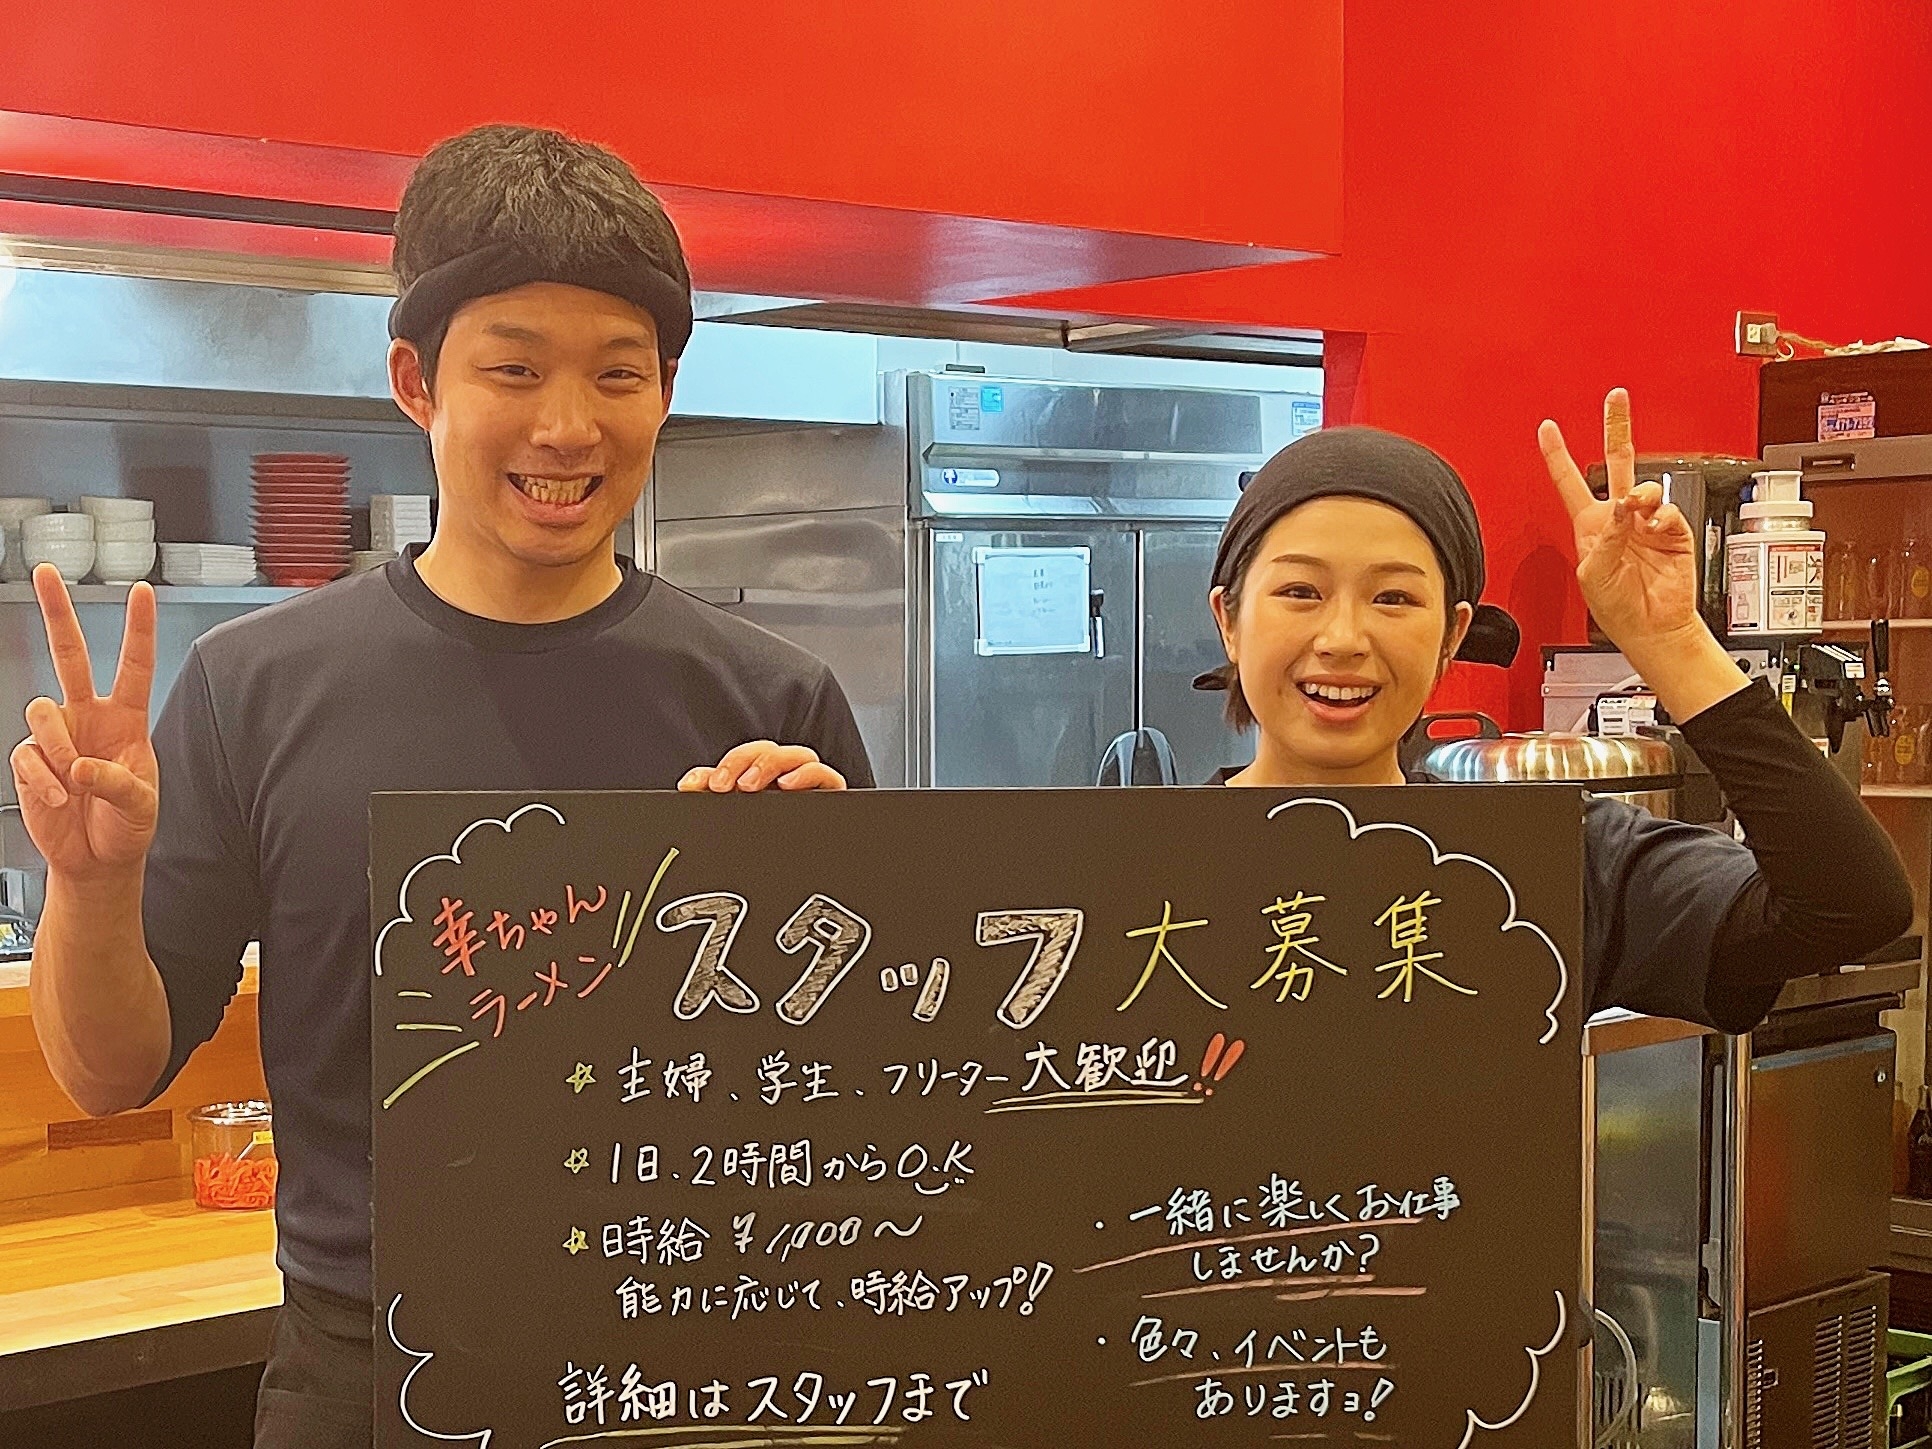 幸ちゃん
ラーメン
スタッフ大募集
☆ 主婦、学生、フリーター大歓迎!!
☆ 1日、2時間からO.K
☆ 時給 ¥1,000〜
能力に応じて、時給アップ!
詳細はスタッフまで
・一緒に楽しくお仕事
しませんか?
・色々、イベントも
ありますョ!